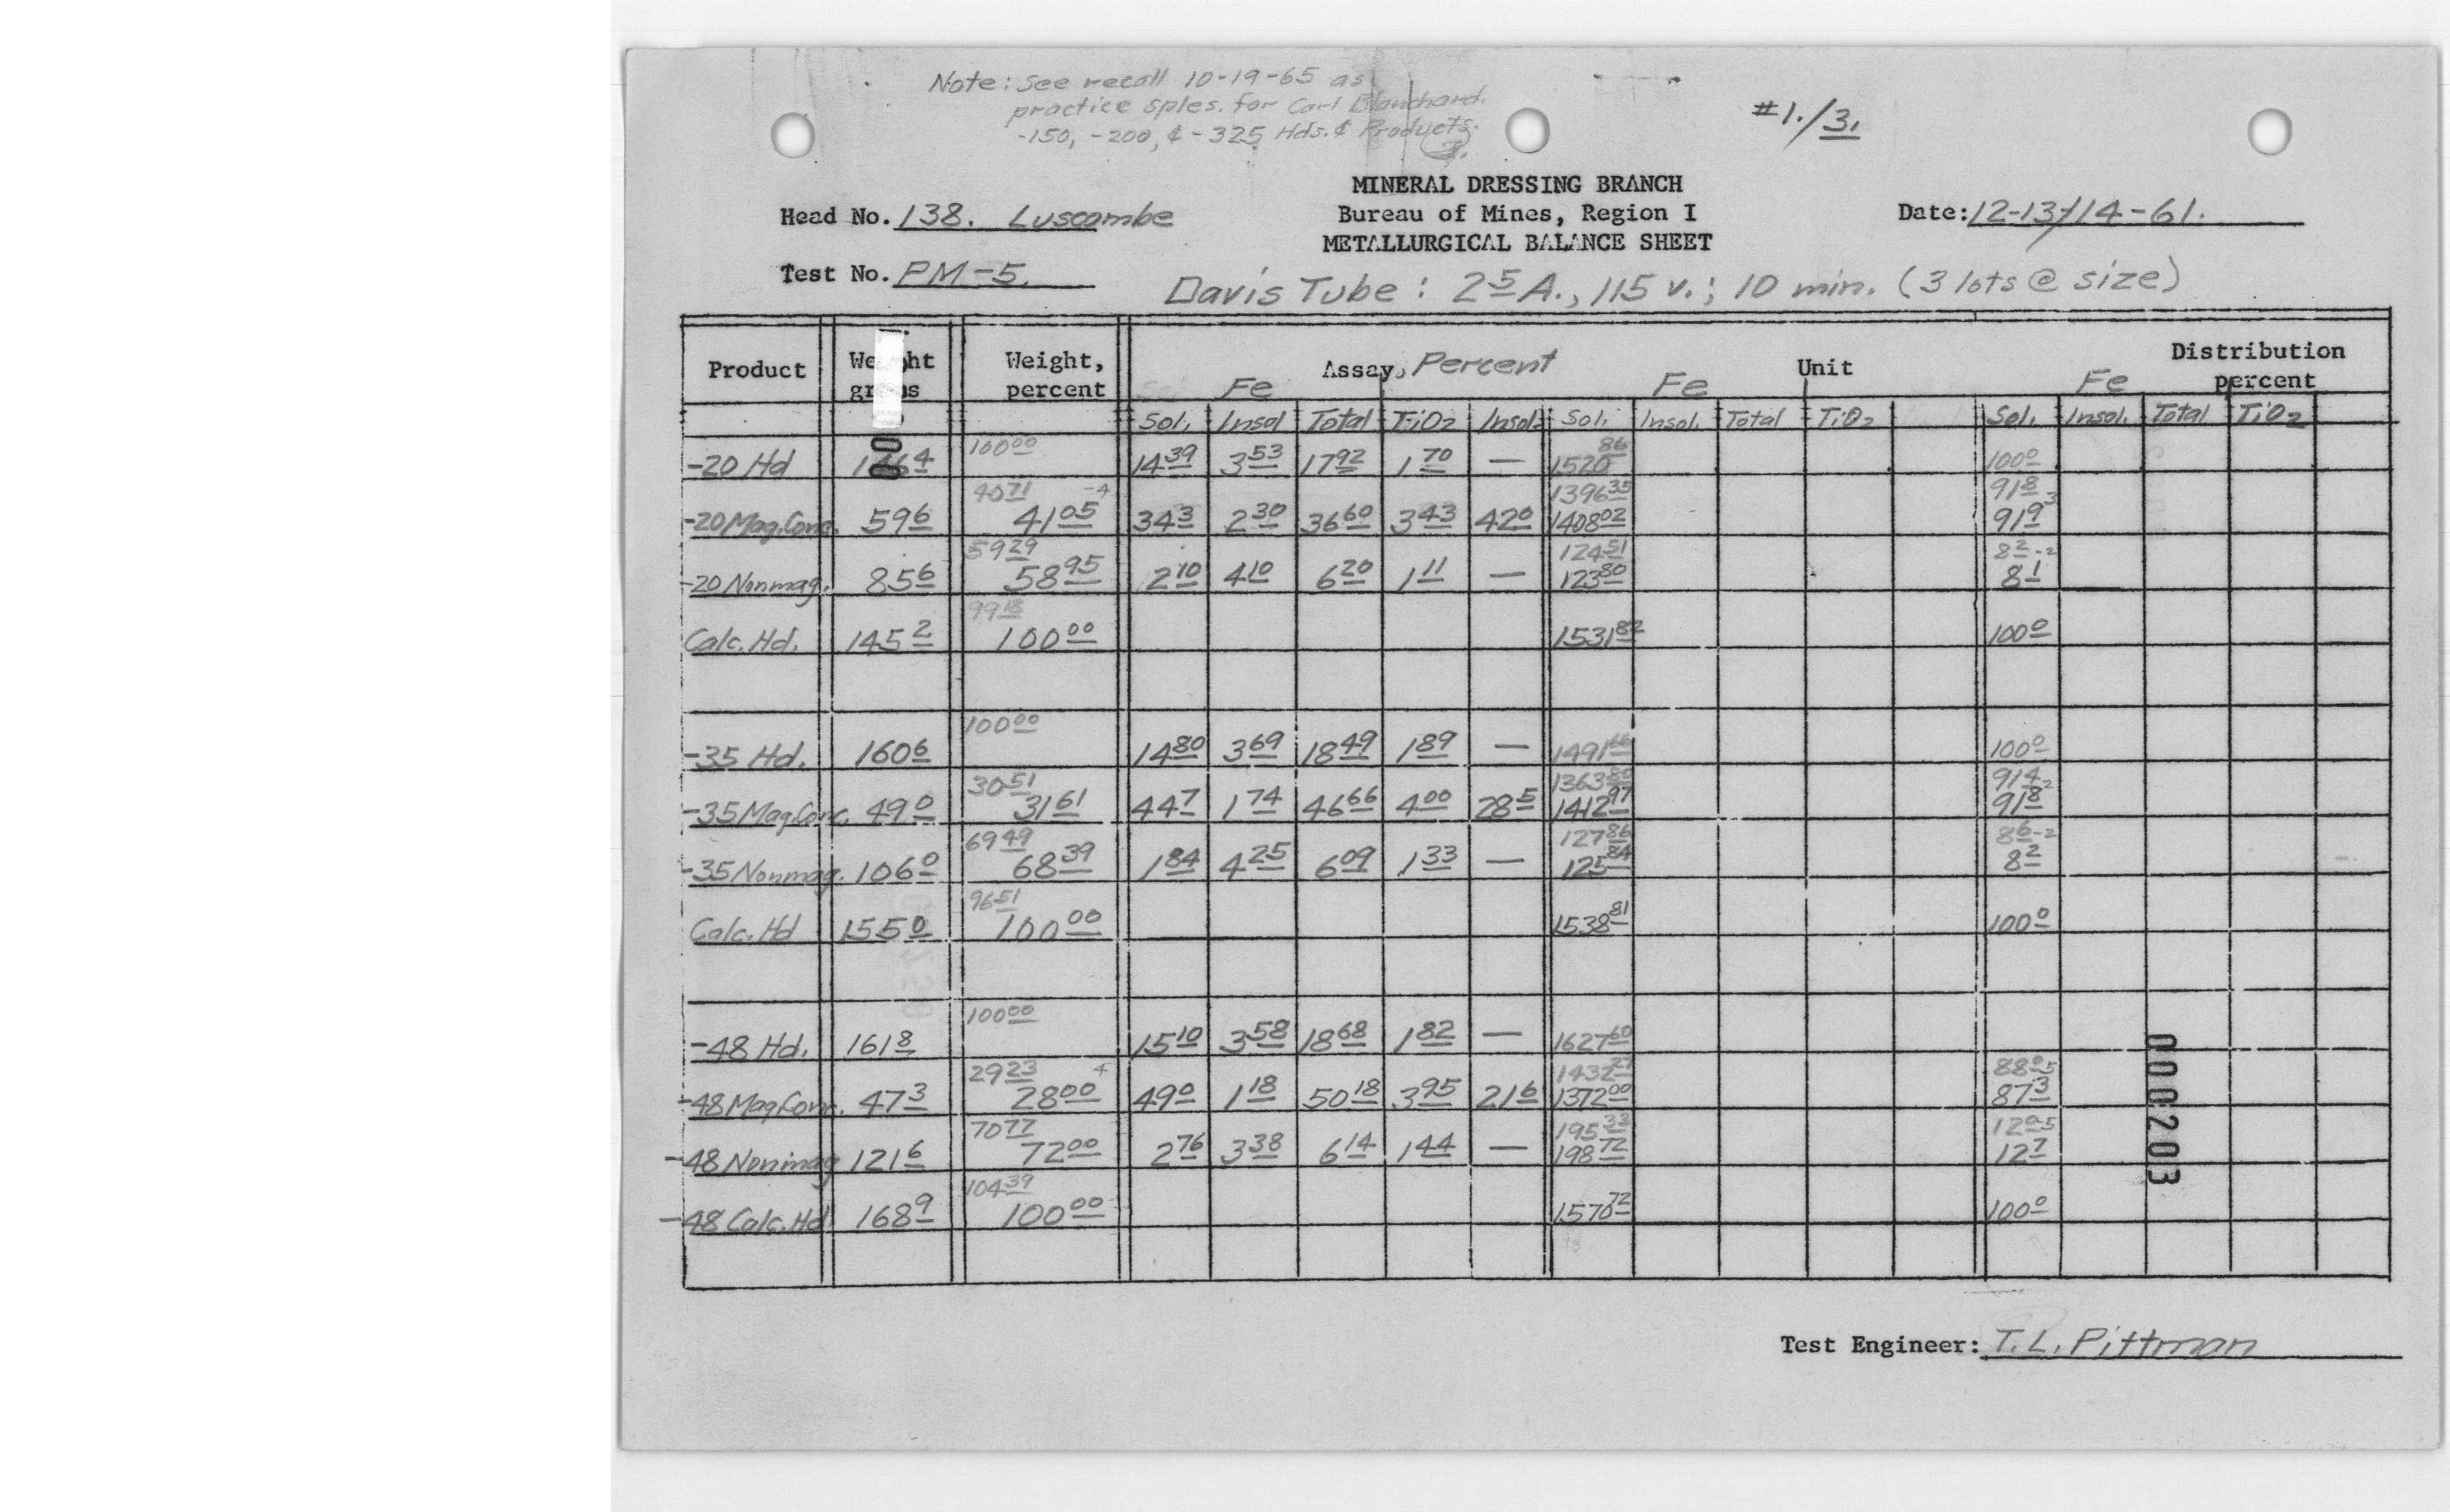 Note: See recall 10-19-65 as
practice sples. for Carl Blanchard.
-150, -200, & -325 Hds. & Products.
#1./3.
MINERAL DRESSING BRANCH
Head No. 138. Luscombe Bureau of Mines, Region I Date: 12-13/14-61.
METALLURGICAL BALANCE SHEET
Test No. PM-5.
Davis Tube: 2 5 A., 115 v.; 10 min. (3 lots @ size)
Product Weight, percent Assay, Percent Fe Unit Fe Distribution percent Fe
Sol. Insol Total TiO2 Insol. Sol. Insol. Total TiO2 Sol. Insol. Total TiO2
100 00 86
-20 Hd 14 39 3 53 17 92 1 70 — 1520 100 0
40 71 -4 1396 35 91 8
-20 Mag. Conc. 59 6 41 05 34 3 2 30 36 60 3 43 42 0 1408 02 91 9
59 29 124 51 8 2 -2
-20 Nonmag. 85 6 58 95 2 10 4 10 6 20 1 11 — 123 80 8 1
99 18
Calc. Hd. 145 2 100 00 1531 82 100 0
100 00
-35 Hd. 160 6 14 80 3 69 18 49 1 89 — 1491 66 100 0
30 51 1363 80 91 4
-35 Mag. Conc. 49 0 31 61 44 7 1 74 46 66 4 00 28 5 1412 97 91 8
69 49 127 86 8 6 -2
-35 Nonmag. 106 0 68 39 1 84 4 25 6 09 1 33 — 125 84 8 2
96 51
Calc. Hd 155 0 100 00 1538 81 100 0
100 00
-48 Hd. 161 8 15 10 3 58 18 68 1 82 — 1627 60
29 23 4 1432 27 88 0
-48 Mag Conc. 47 3 28 00 49 0 1 18 50 18 3 95 21 6 1372 00 87 3
70 77 195 33 12 0
-48 Nonmag 121 6 72 00 2 76 3 38 6 14 1 44 — 198 72 12 7
104 39
-48 Calc. Hd. 168 9 100 00 1570 72 100 0
000203
Test Engineer: T. L. Pittman